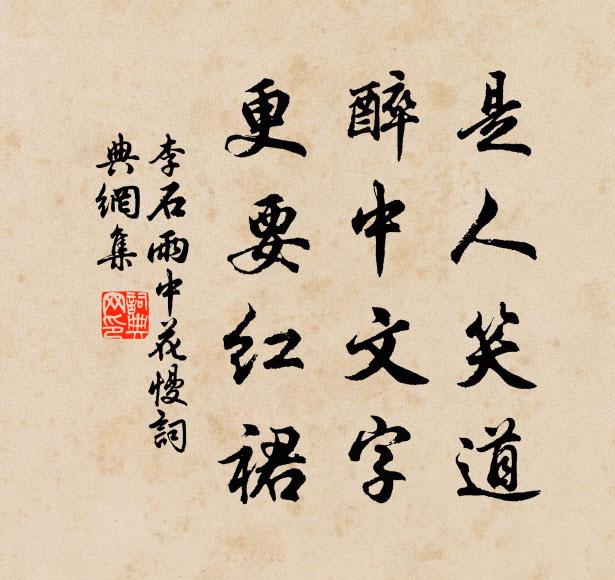 是人笑道
醉中文字
更要红裙
李石雨中花慢詞
典網集
詞典
网印